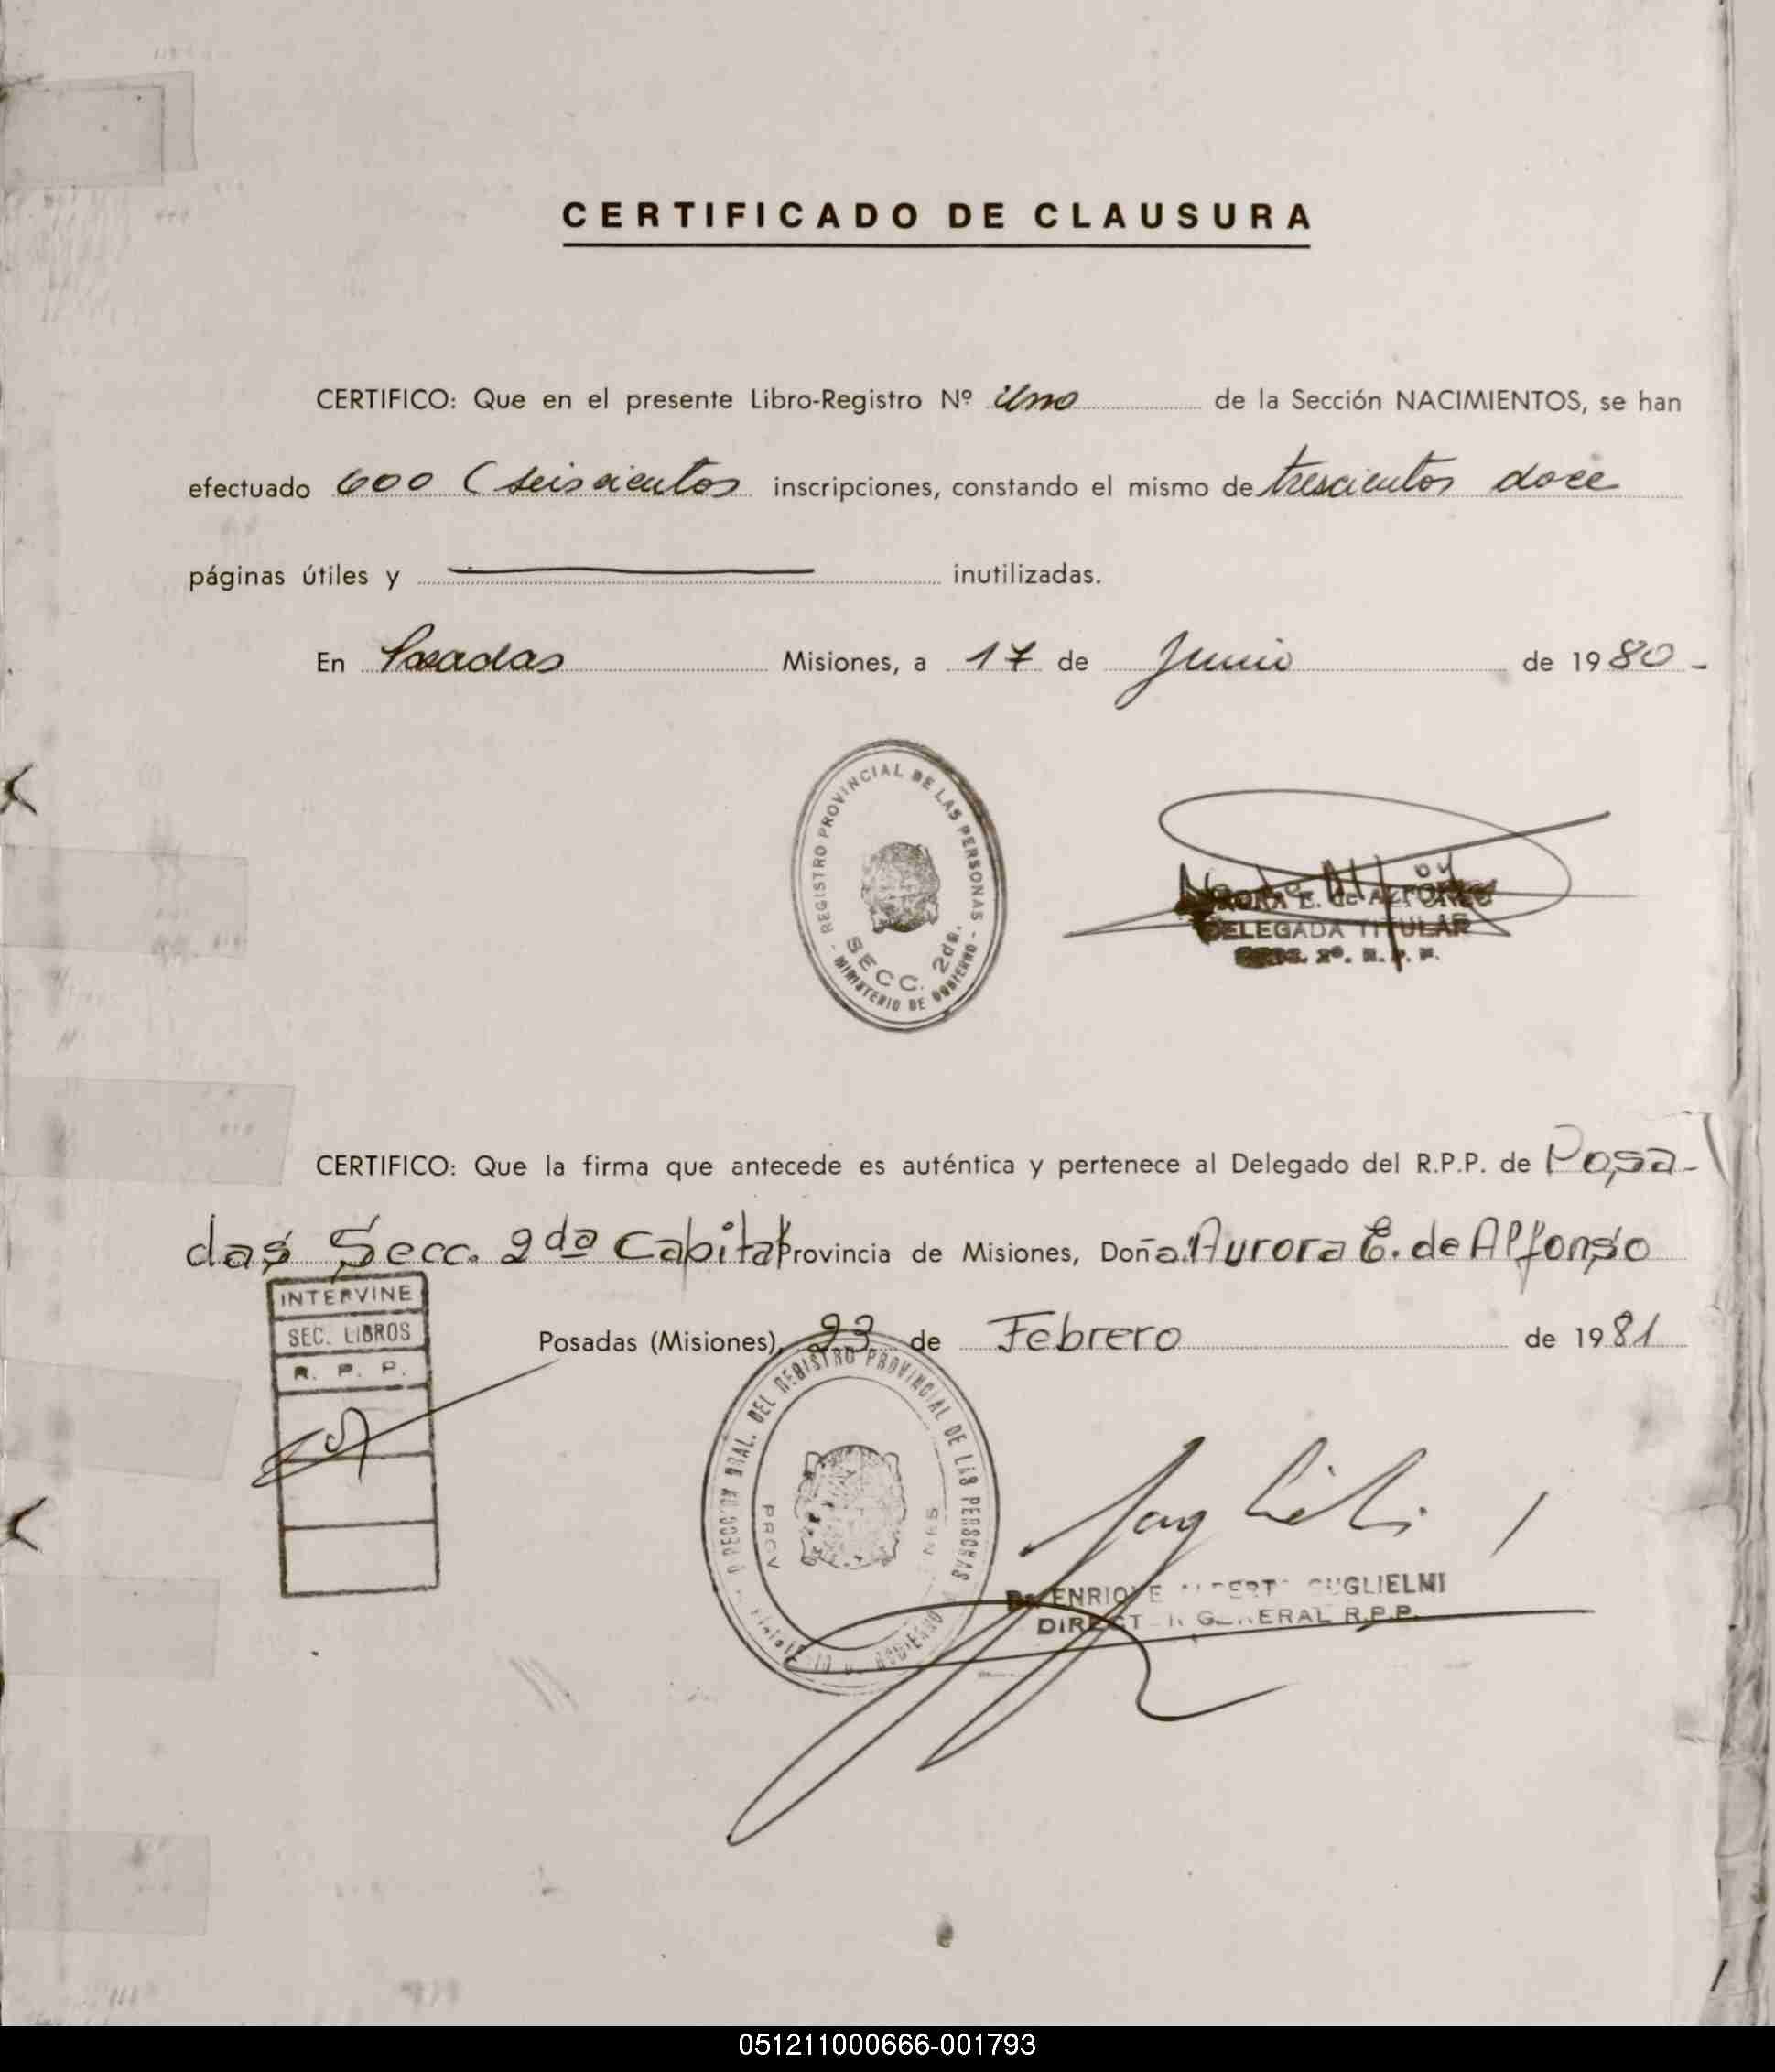 CERTIFICADO DE CLAUSURA
CERTIFICO: Que en el presente Libro-Registro Nº uno de la Sección NACIMIENTOS, se han
efectuado 600 (seiscientos inscripciones, constando el mismo de trescientos doce
páginas útiles y inutilizadas.
En Posadas Misiones, a 17 de Junio de 1980-
REGISTRO PROVINCIAL DE LAS PERSONAS
SECC. 2da.
- MINISTERIO DE GOBIERNO -
E. de
DELEGADA TITULAR
CERTIFICO: Que la firma que antecede es auténtica y pertenece al Delegado del R.P.P. de Posa-
das Secc. 2da Capital Provincia de Misiones, Doña Aurora E. de Alfonso
INTERVINE
SEC. LIBROS
R. P. P.
Posadas (Misiones), 23 de Febrero de 1981
DEL REGISTRO PROVINCIAL DE LAS PERSONAS
GOBIERNO
Dr. ENRIQUE ALBERTO GUGLIELMI
DIRECTOR GENERAL R.P.P.
051211000666-001793